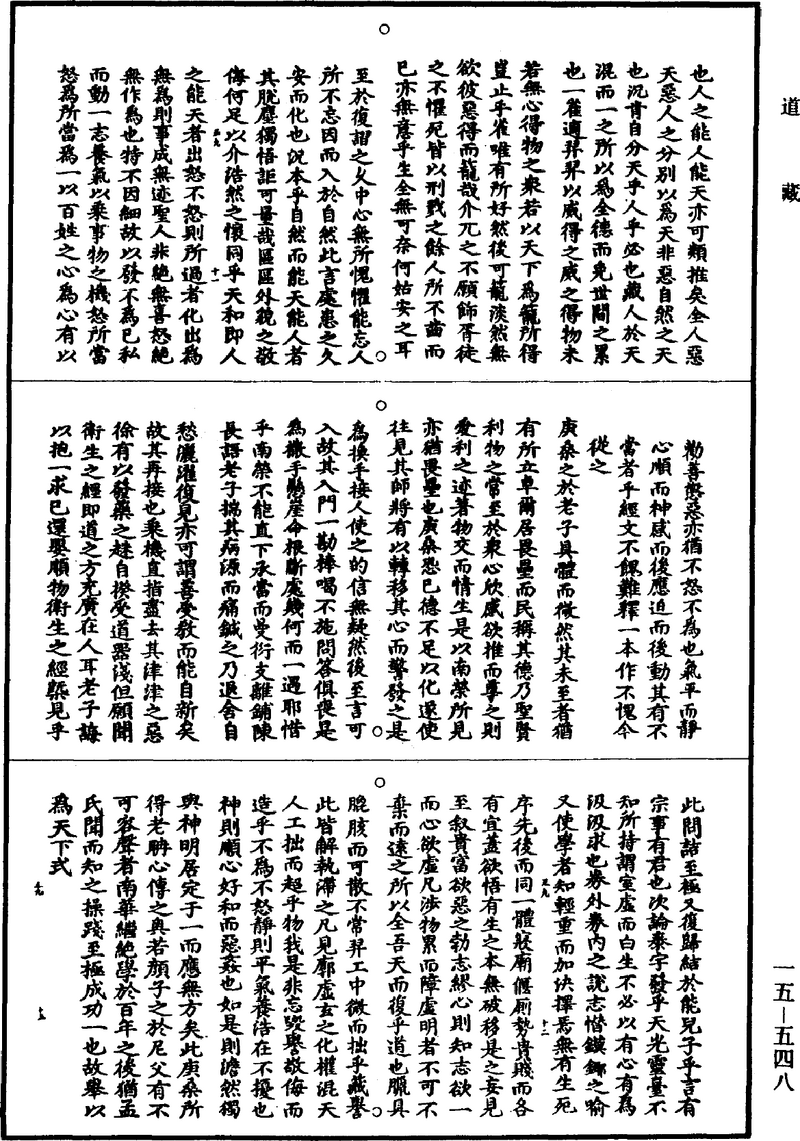 道藏
也人之能人能天亦可類推矣全人惡
天惡人之分别以為天非惡自然之天
也沉肯自分天乎人乎必也藏人於天
混而一之所以為全德而免世間之累
也一雀適羿羿以威得之威之得物未
若無心得物之衆若以天下為籠所得
豈止乎雀唯有所好然後可籠淡然無
欲彼惡得而籠哉介兀之不顧飾胥徒
之不懼死皆以刑戮之餘人所不齒而
已亦無意乎生全無可奈何姑安之耳
至於復謵之久中心無所愧懼能忘人
所不忘因而入於自然此言處患之久
安而化也況本乎自然而能天能人者
其脫塵獨悟詎可量哉區區外貌之敬
侮何足以介浩然之懷同乎天和即人
之能天者出怒不怒則所過者化出為
無為則事成無迹聖人非絶無喜怒絶
無作為也特不因細故以發不為已私
而動一志養氣以乘事物之機怒所當
怒為所當為一以百姓之心為心有以
勸善懲惡亦猶不怒不為也氣平而静
心順而神感而後應迫而後動其有不
當者乎經文不餽難釋一本作不愧今
從之
庚桑之於老子具體而微然其未至者猶
有所立卓爾居畏壘而民稱其德乃聖賢
利物之常至於衆心欣感欲推而尊之則
愛利之迹著物交而情生是以南榮所見
亦猶畏壘也庚桑恐巳德不足以化還使
往見其師將有以轉移其心而警發之是
為換手接人使之的信無疑然後至言可
入故其入門一勘棒喝不施問答俱喪是
為撒手懸崖命根斷處幾何而一遇耶惜
乎南榮不能直下承當而曼衍支離鋪陳
長語老子揣其病源而痛鍼之乃退舍自
愁灑濯復見亦可謂善受教而能自新矣
故其再接也乘機直指盡去其津津之惡
徐有以發藥之趎自揆受道器淺但願聞
衛生之經即道之方充廣在人耳老子誨
以抱一求已還嬰順物衛生之經槩見乎
此問詰至極又復歸結於能兒子乎言有
宗事有君也次論泰宇發乎天光靈臺不
知所持謂室虛而白生不必以有心有為
汲汲求也券外券内之説志憯鏌鋣之喻
又使學者知輕重而加決擇焉無有生死
序先後而同一體寢廟偃厠勢貴賤而各
有宜蓋欲悟有生之本無破移是之妄見
至叙貴富欲惡之勃志繆心則知志欲一
而心欲虛凡涉物累而障虛明者不可不
棄而遠之所以全吾天而復乎道也臘具
膍胲而可散不常羿工中微而拙乎藏譽
此皆解執滯之凡見廓虛玄之化權混天
人工拙而超乎物我是非忘毀譽敬侮而
造乎不為不怒静則平氣養浩在不擾也
神則順心好和而惡姦也如是則澹然獨
與神明居定于一而應無方矣此庚桑所
得老聃心傳之奥若顔子之於尼父有不
可容聲者南華繼絶學於百年之後猶孟
氏聞而知之操踐至極成功一也故舉以
為天下式
一五—五四八